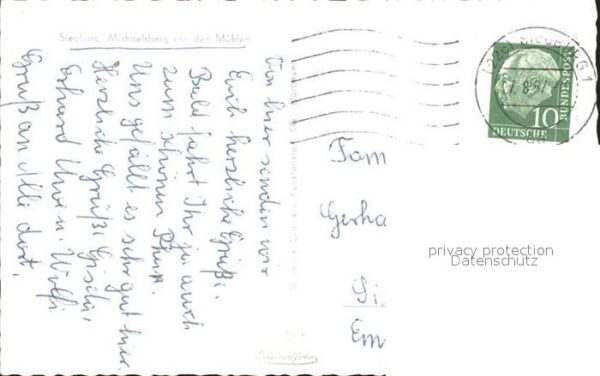 Siegburg Michaelsberg mit den Mühlen
Von hier senden wir
Euch herzliche Grüße.
Bald fahrt Ihr ja auch
zum schönen Rhein
Uns gefällt es sehr gut hier.
Herzliche Grüße Gisela,
Erhard Uwe u. Wolfi
Gruß an Alle dort.
SIEGBURG 1
DEUTSCHE
BUNDESPOST
10
Fam
Gerha
Si
Em
privacy protection
Datenschutz